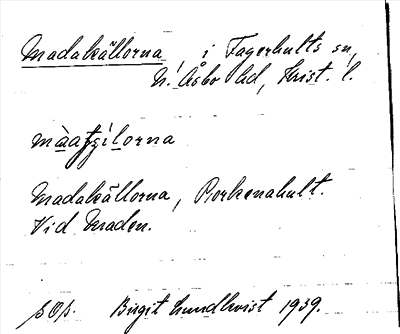 Madakällorna, i Fagerhults sn,
N. Åsbo hd, Krist. l.
Madakällorna, Porkenahult.
Vid Maden.
Birgit Lundkvist 1939.